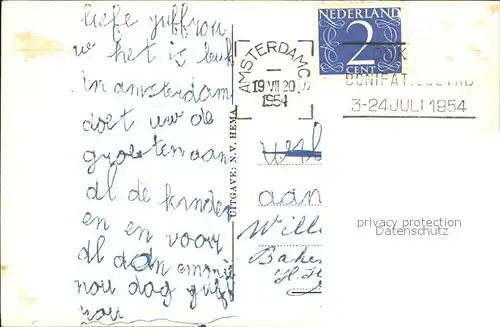 liefe juffrou
we het is leuk
in amsterdam
doet uw de
groeten aan
al de kinder
en en voor
al dan
nou dag juff
rou
UITGAVE: N.V. HEMA
AMSTERDAM C.S.
19 VII 20
1954
NEDERLAND
2
CENT
3-24 JULI 1954
aan
Wille
Bake
privacy protection
Datenschutz